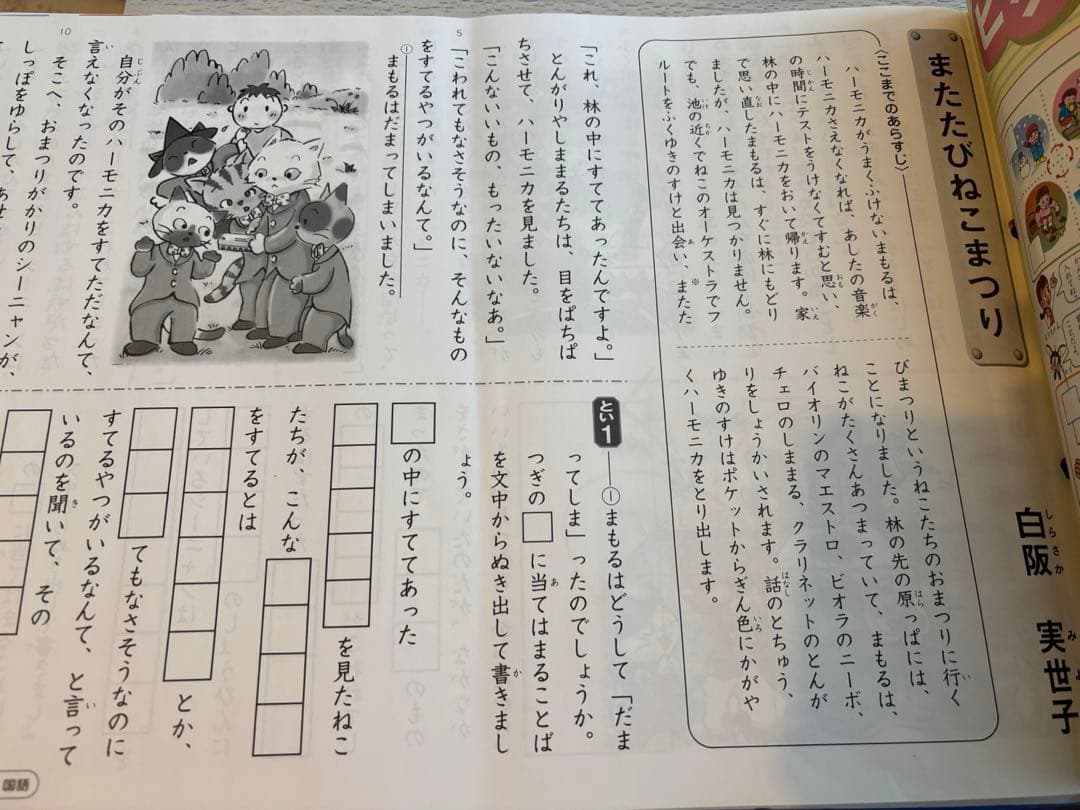 またたびねこまつり
白阪 実世子
しらさか みよ
〈ここまでのあらすじ〉
ハーモニカがうまくふけないまもるは、
ハーモニカさえなくなれば、あしたの音楽
の時間にテストをうけなくてすむと思い、
林の中にハーモニカをおいて帰ります。家
で思い直したまもるは、すぐに林にもどり
ましたが、ハーモニカは見つかりません。
でも、池の近くでねこのオーケストラでフ
ルートをふくゆきのすけと出会い、※また
びまつりというねこたちのおまつりに行く
ことになりました。林の先の原っぱには、
ねこがたくさんあつまっていて、まもるは、
バイオリンのマエストロ、ビオラのニーボ、
チェロのしままる、クラリネットのとんが
りをしょうかいされます。話のとちゅう、
ゆきのすけはポケットからぎん色にかがや
くハーモニカをとり出します。
「これ、林の中にすててあったんですよ。」
とんがりやしままるたちは、目をぱちぱ
ちさせて、ハーモニカを見ました。
「こんないいもの、もったいないなあ。」
「こわれてもなさそうなのに、そんなもの
をすてるやつがいるなんて。」
①まもるはだまってしまいました。
自分がそのハーモニカをすてただなんて、
言えなくなったのです。
そこへ、おまつりがかりのシーニャンが、
しっぽをゆらして、
5
10
とい1
①まもるはどうして「だま
ってしま」ったのでしょうか。
つぎの□に当てはまることば
を文中からぬき出して書きまし
ょう。
□の中にすててあった
□□□□□を見たねこ
たちが、こんな□□□□
をすてるとは
□□□□□□とか、
□□□てもなさそうなのに
すてるやつがいるなんて、と言って
いるのを聞いて、その
国語